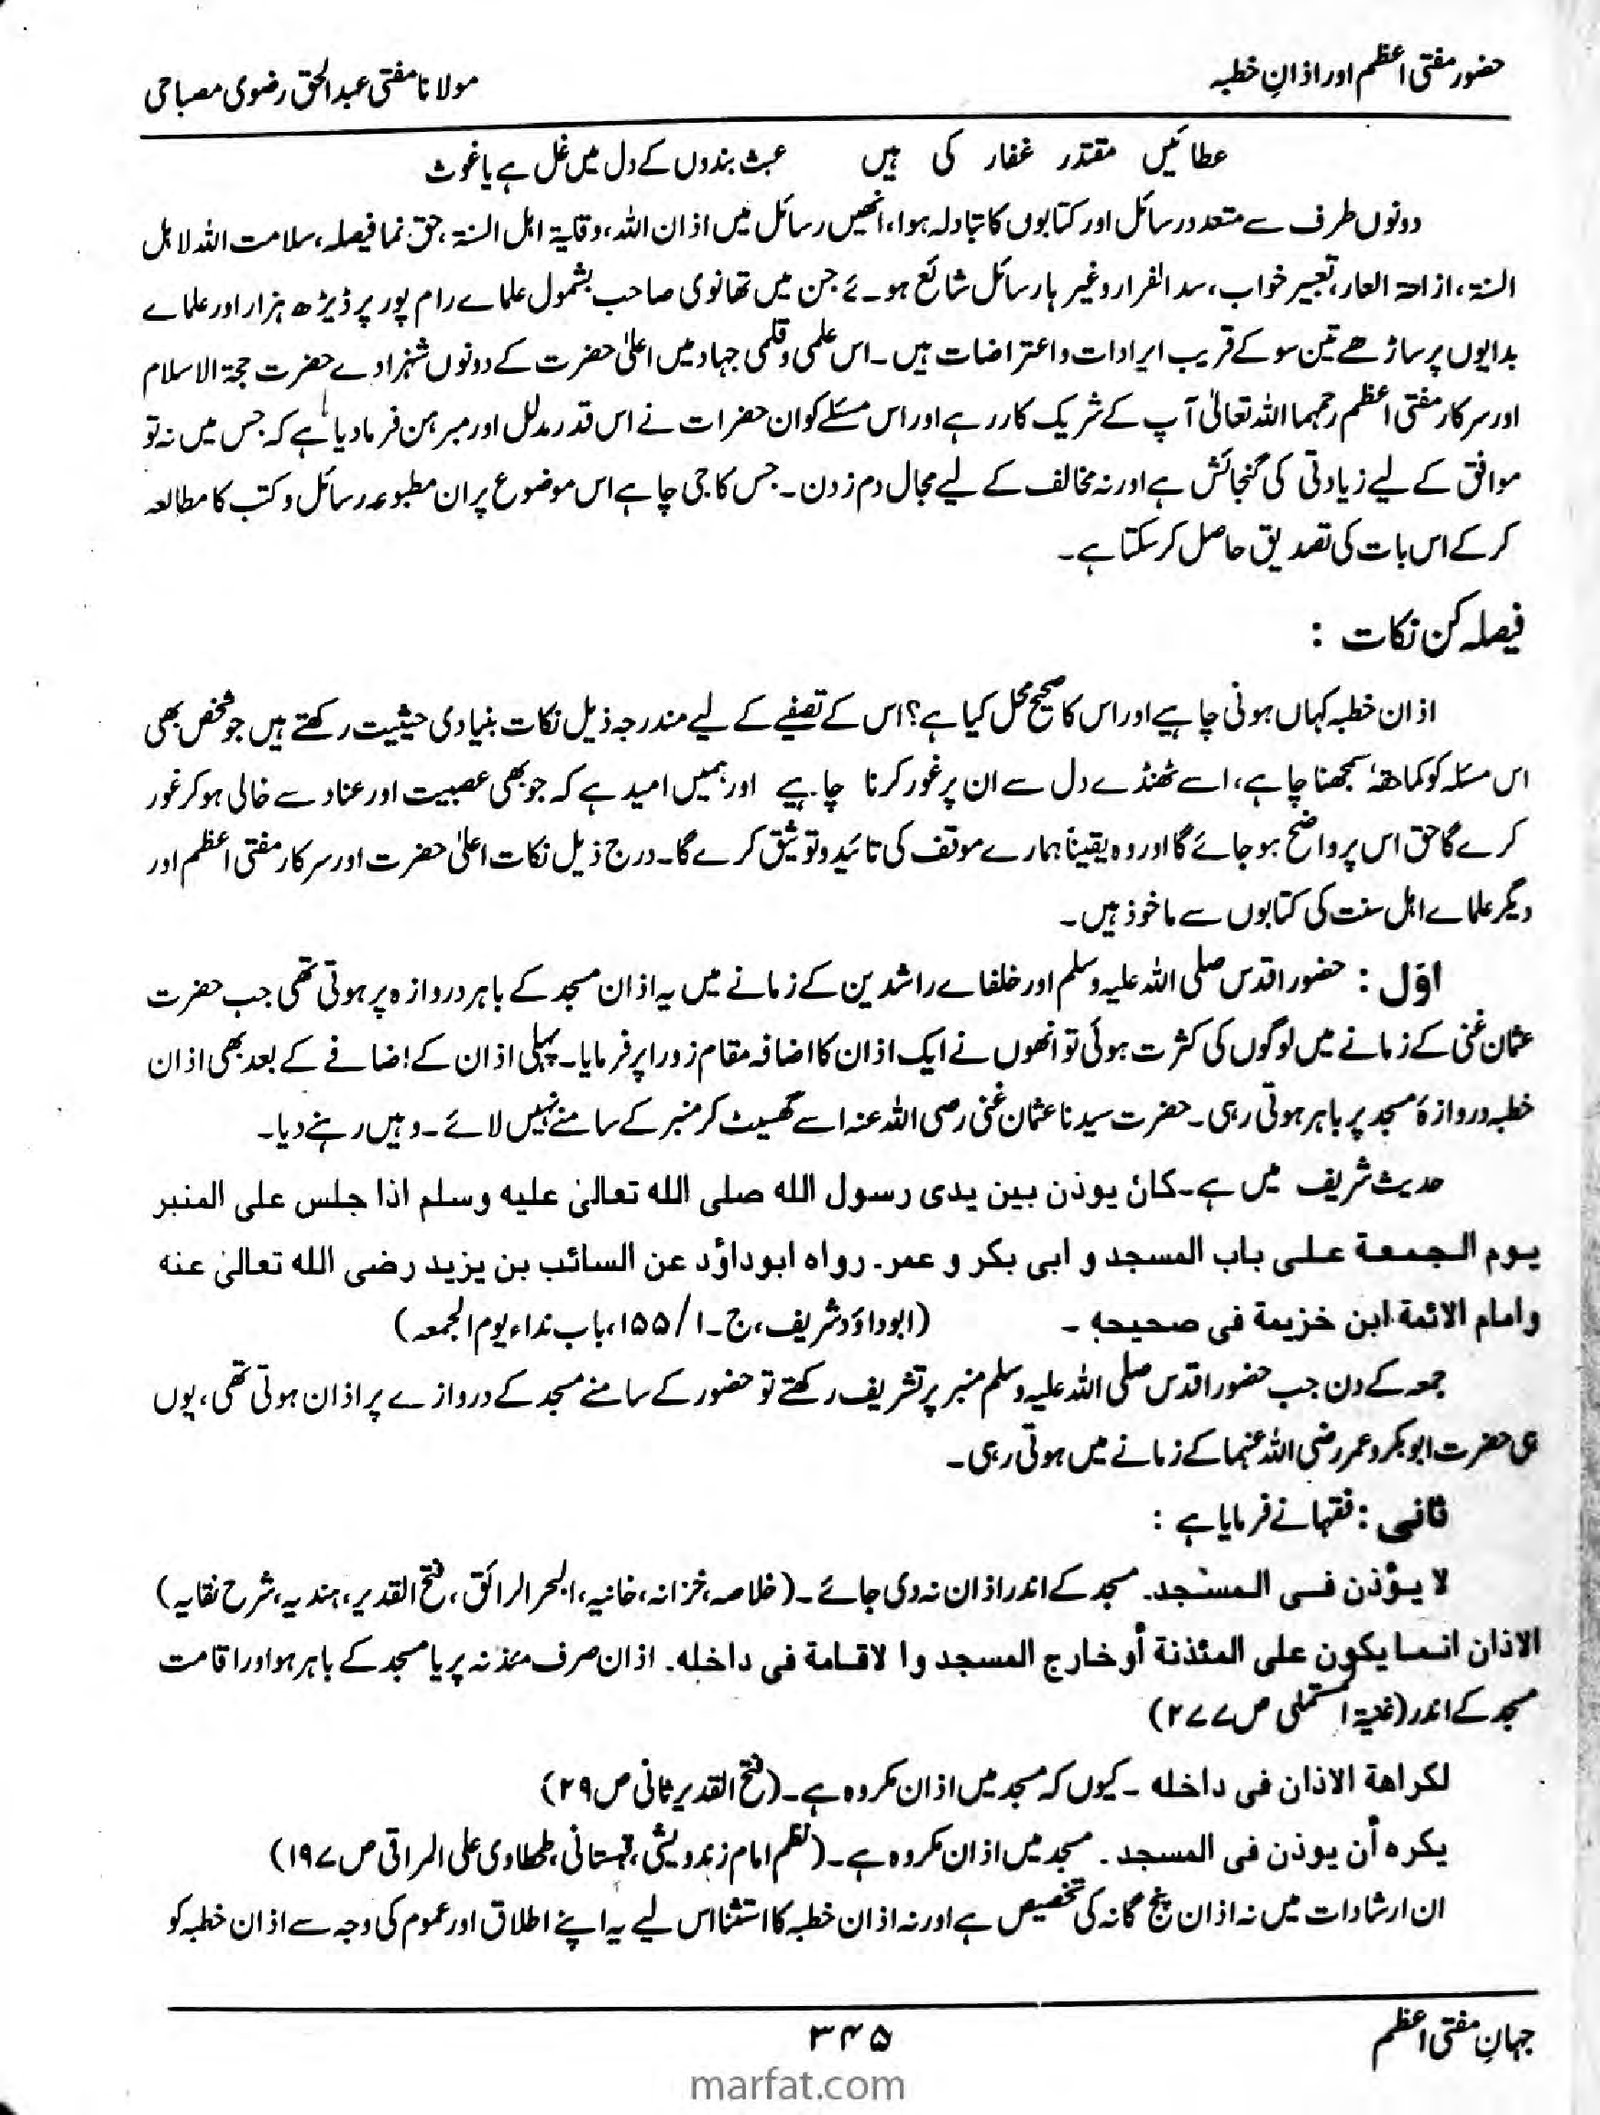 حضور مفتی اعظم اور اذانِ خطبہ
مولانا مفتی عبدالحق رضوی مصباحی
عطائیں مقتدر غفار کی ہیں عبث بندوں کے دل میں غل ہے یا غوث
دونوں طرف سے متعدد رسائل اور کتابوں کا تبادلہ ہوا، انھیں رسائل میں اذان اللہ، وقایۃ اہل السنۃ، حق نما فیصلہ، سلامت اللہ لاہل
السنۃ، ازاحۃ العار، تعبیر خواب، سد الفرار وغیرہا رسائل شائع ہوئے جن میں تھانوی صاحب بشمول علماے رام پور پر ڈیڑھ ہزار اور علماے
بدایوں پر ساڑھے تین سو کے قریب ایرادات و اعتراضات ہیں۔ اس علمی و قلمی جہاد میں اعلیٰ حضرت کے دونوں شہزادے حضرت حجۃ الاسلام
اور سرکار مفتی اعظم رحمہما اللہ تعالیٰ آپ کے شریک کار رہے اور اس مسئلے کو ان حضرات نے اس قدر مدلل اور مبرہن فرما دیا ہے کہ جس میں نہ تو
موافق کے لیے زیادتی کی گنجائش ہے اور نہ مخالف کے لیے مجال دم زدن۔ جس کا جی چاہے اس موضوع پر ان مطبوعہ رسائل و کتب کا مطالعہ
کر کے اس بات کی تصدیق حاصل کر سکتا ہے۔
فیصلہ کن نکات :
اذان خطبہ کہاں ہونی چاہیے اور اس کا صحیح محل کیا ہے؟ اس کے تصفیے کے لیے مندرجہ ذیل نکات بنیادی حیثیت رکھتے ہیں جو شخص بھی
اس مسئلہ کو کما حقہٗ سمجھنا چاہے، اسے ٹھنڈے دل سے ان پر غور کرنا چاہیے اور ہمیں امید ہے کہ جو بھی عصبیت اور عناد سے خالی ہو کر غور
کرے گا حق اس پر واضح ہو جائے گا اور وہ یقیناً ہمارے موقف کی تائید و توثیق کرے گا۔ درج ذیل نکات اعلیٰ حضرت اور سرکار مفتی اعظم اور
دیگر علماے اہل سنت کی کتابوں سے ماخوذ ہیں۔
اوّل : حضور اقدس صلی اللہ علیہ وسلم اور خلفاے راشدین کے زمانے میں یہ اذان مسجد کے باہر دروازہ پر ہوتی تھی جب حضرت
عثمان غنی کے زمانے میں لوگوں کی کثرت ہوئی تو انھوں نے ایک اذان کا اضافہ مقام زورا پر فرمایا۔ پہلی اذان کے اضافے کے بعد بھی اذان
خطبہ دروازۂ مسجد پر باہر ہوتی رہی۔ حضرت سیدنا عثمان غنی رضی اللہ عنہ اسے گھسیٹ کر منبر کے سامنے نہیں لائے۔ وہیں رہنے دیا۔
حدیث شریف میں ہے۔ کان یوذن بین یدی رسول الله صلی الله تعالیٰ علیه وسلم اذا جلس علی المنبر
یوم الجمعة علی باب المسجد و ابی بکر و عمر۔ رواه ابوداؤد عن السائب بن یزید رضی الله تعالیٰ عنه
وامام الائمة ابن خزیمة فی صحیحه ۔ (ابوداؤد شریف، ج۔۱/۱۵۵، باب نداء یوم الجمعہ)
جمعہ کے دن جب حضور اقدس صلی اللہ علیہ وسلم منبر پر تشریف رکھتے تو حضور کے سامنے مسجد کے دروازے پر اذان ہوتی تھی، یوں
ہی حضرت ابوبکر و عمر رضی اللہ عنہما کے زمانے میں ہوتی رہی۔
ثانی : فقہا نے فرمایا ہے :
لا یؤذن فی المسجد۔ مسجد کے اندر اذان نہ دی جائے۔ (خلاصہ، خزانہ، خانیہ، البحر الرائق، فتح القدیر، ہندیہ، شرح نقایہ)
الاذان انما یکون علی المئذنة أو خارج المسجد والا قامة فی داخله۔ اذان صرف مئذنہ پر یا مسجد کے باہر ہو اور اقامت
مسجد کے اندر (غنیۃ المستملی ص ۲۷۷)
لکراهة الاذان فی داخله ۔ کیوں کہ مسجد میں اذان مکروہ ہے۔ (فتح القدیر ثانی ص ۲۹)
یکره أن یوذن فی المسجد ۔ مسجد میں اذان مکروہ ہے۔ (نظم امام زندویشی، قہستانی، طحطاوی علی المراقی ص ۱۹۷)
ان ارشادات میں نہ اذان پنج گانہ کی تخصیص ہے اور نہ اذان خطبہ کا استثنا اس لیے یہ اپنے اطلاق اور عموم کی وجہ سے اذان خطبہ کو
جہانِ مفتی اعظم
۳۴۵
marfat.com